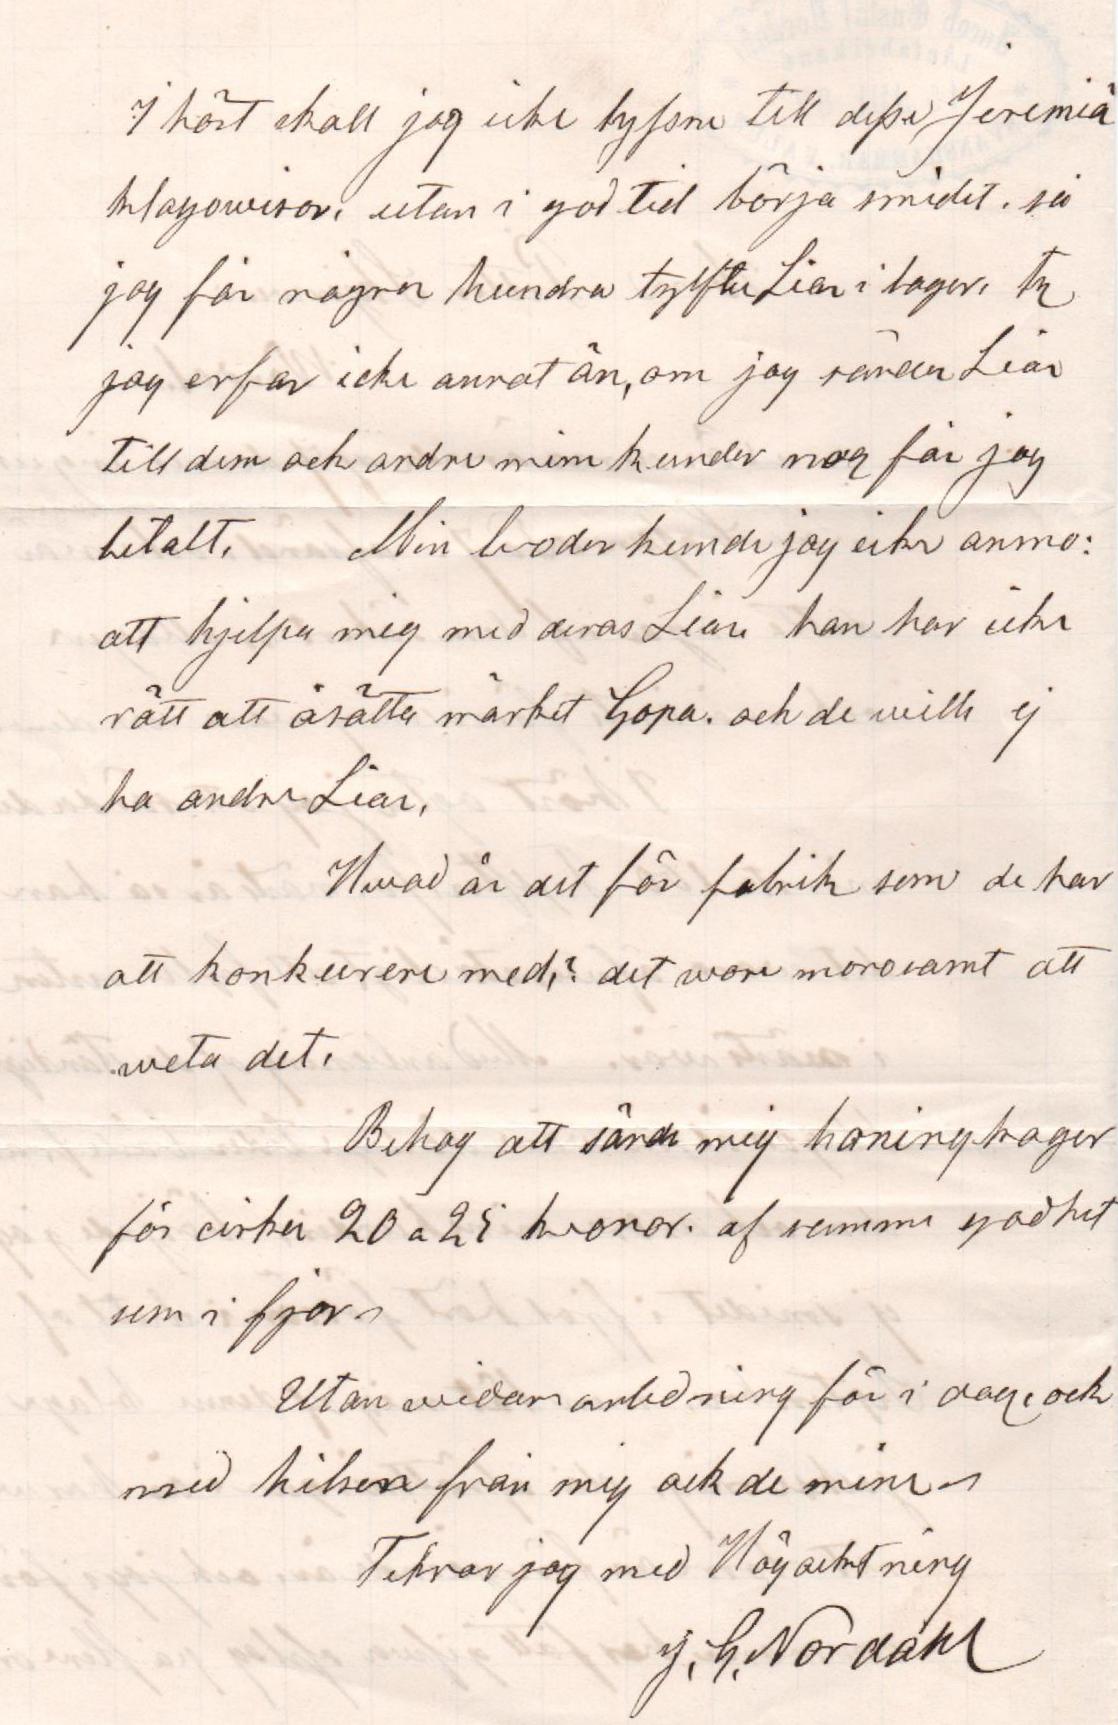 I höst skall jag icke lyssna till dessa Jeremiä
klagowisor, utan i god tid börja smidet. så
jag får några hundra tylfter Liar i lager, ty
jag erfar icke annat än, om jag sänder Liar
till dem och andra mina kunder nog får jag
betalt. Min broder kunde jag icke anmo:
att hjelpa mig med deras Liar, han har icke
rätt att åsätta märket Gopa. och de wille ej
ha andra Liar.
Hwad är det för fabrik som de har
att konkurera med,? det wore morosamt att
weta det.
Behag att sända mig honingkagor
för cirka 20 a 25 kronor. af samma godhet
som i fjor
Utan widare anledning för i dag, och
med helsen från mig och de mina
Teknar jag med Högacktning
J. G. Nordahl